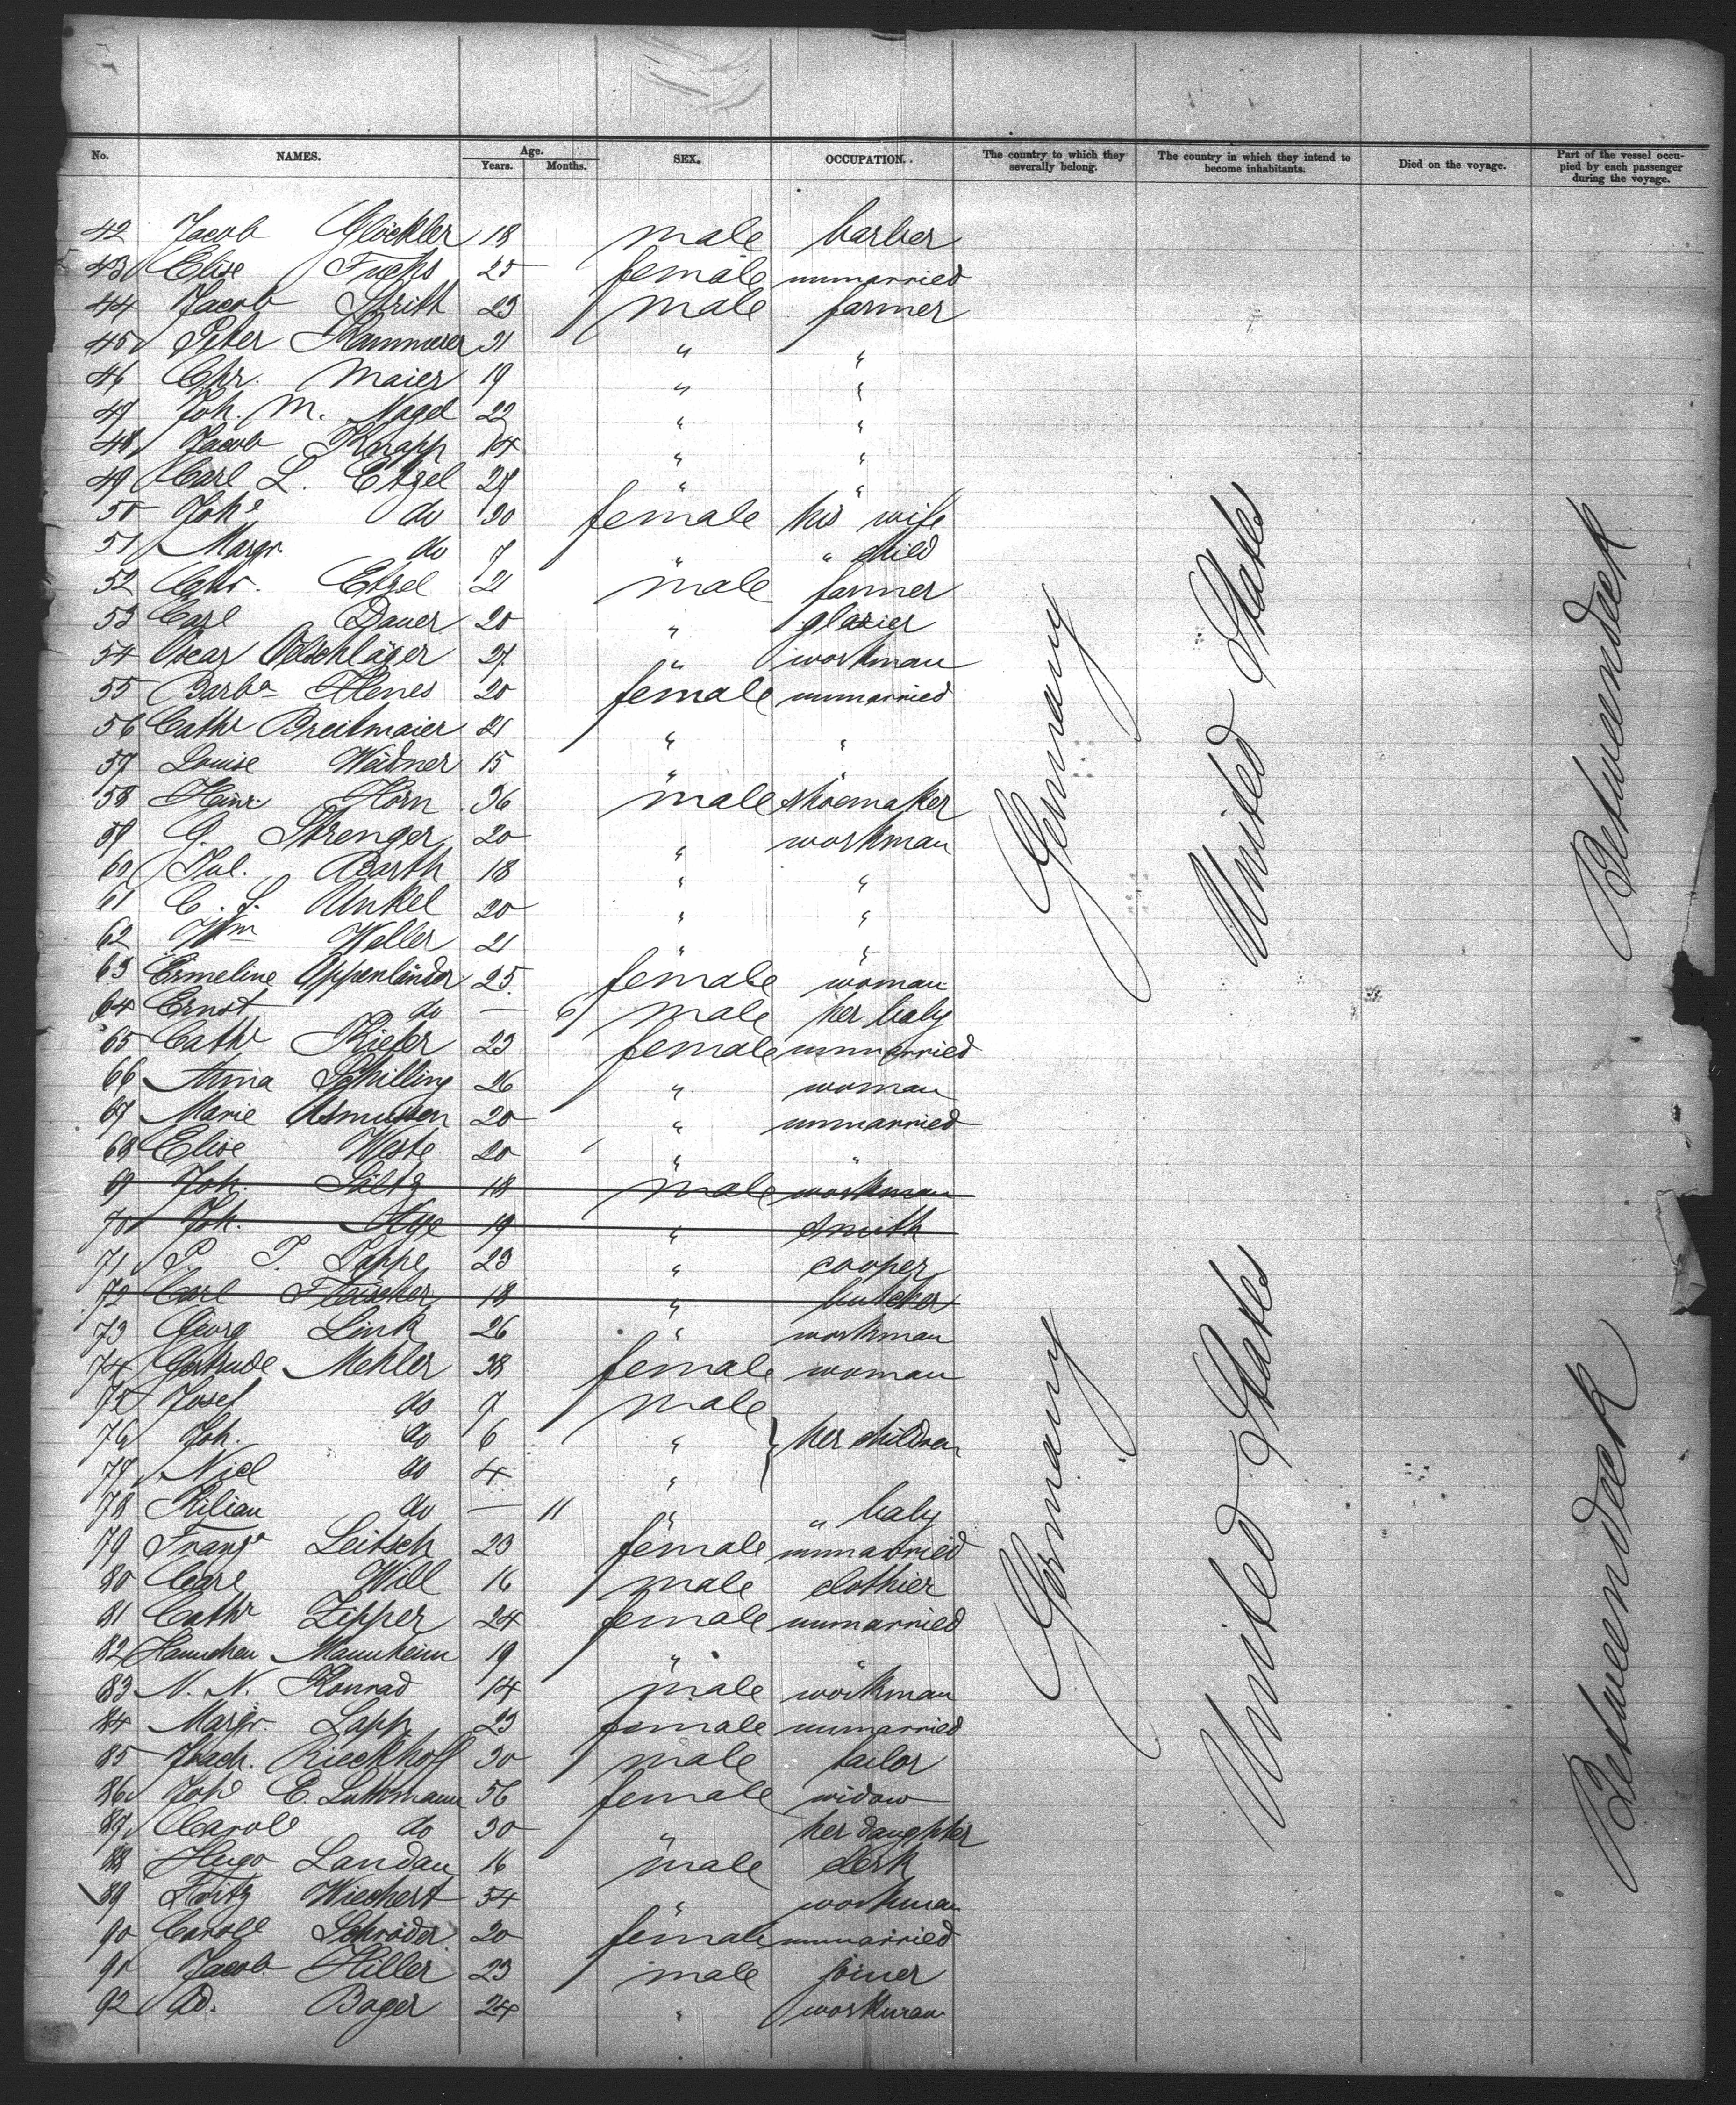 No. NAMES. Age. Years. Months. SEX. OCCUPATION. The country to which they severally belong. The country in which they intend to become inhabitants. Died on the voyage. Part of the vessel occupied by each passenger during the voyage.
42 Jacob Glöckler 18 male barber
43 Elise Fuchs 25 female unmarried
44 Jacob 23 male farmer
45 Peter Kammerer 21 " "
46 Chr. Maier 19 " "
47 Joh. M. Nagel 22 " "
48 Jacob Knapp 14 " "
49 Carl L. Etzel 27 " "
50 Joh^e do 30 female his wife
51 Margr. do 7 " " child
52 Chr. Etzel 21 male farmer
53 Carl Dauer 20 " glazier
54 Oscar Oelschläger 27 " workman
55 Barb^a Henes 20 female unmarried
56 Cathr Breitmaier 21 " "
57 Louise Weidner 15 " "
58 Heinr. Horn 36 male shoemaker
59 G. Strenger 20 " workman
60 Jul. Barth 18 " "
61 C. S. Unkel 20 " "
62 Wm Weller 21 " "
63 Ermeline Oppenländer 25 female woman
64 Ernst do — 6 male her baby
65 Cathr Kiefer 23 female unmarried
66 Anna Schilling 26 " woman
67 Marie Asmussen 20 " unmarried
68 Elise Weste 20 " "
69 Joh. 18 male workman
70 Joh. 19 " smith
71 P. T. Poppe 23 " cooper
72 Carl Fleischer 18 " butcher
73 Georg Link 26 " workman
74 Gertrude Mehler 38 female woman
75 Josef do 9 male
76 Joh. do 6 " her children
77 Nicl do 4 "
78 Kilian do — 11 " " baby
79 Franz^a Leitsch 23 female unmarried
80 Carl Will 16 male clothier
81 Cathr Zipper 24 female unmarried
82 Hannchen Mannheim 19 " "
83 N. N. Konrad 14 male workman
84 Margr. Lapp 23 female unmarried
85 Joach. Rieckhoff 30 male tailor
86 Joh^e C. Luthmann 56 female widow
87 Carol^e do 30 " her daughter
88 Hugo Landau 16 male clerk
89 Fritz Wiechert 54 " workman
90 Carol^e Schröder 20 female unmarried
91 Jacob Hiller 23 male joiner
92 Ad. Bager 24 " workman
Germany United States Betweendeck
Germany United States Betweendeck